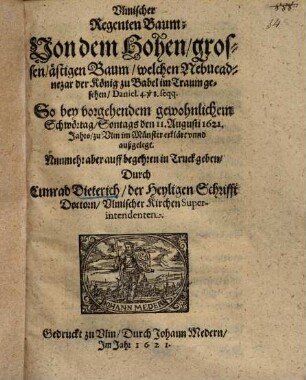 Vlmischer
Regenten Baum:
Von dem Hohen/ gros-
sen/ ästigen Baum/ welchen Nebucad-
nezar der König zu Babel im Traum ge-
sehen/ Daniel. 4. ỳ 1. seqq.
So bey vorgehendem gewohnlichem
Schwörtag/ Sontags den 11. Augusti 1621.
Jahrs/ zu Vlm im Münster erklärt vnnd
außgelegt.
Nunmehr aber auff begehren in Truck geben/
Durch
Cunrad Dieterich/ der Heyligen Schrifft
Doctorn/ Vlmischer Kirchen Super-
intendenten.
JOHANN MEDER
Gedruckt zu Vlm/ Durch Johann Medern/
Im Jahr 1621.